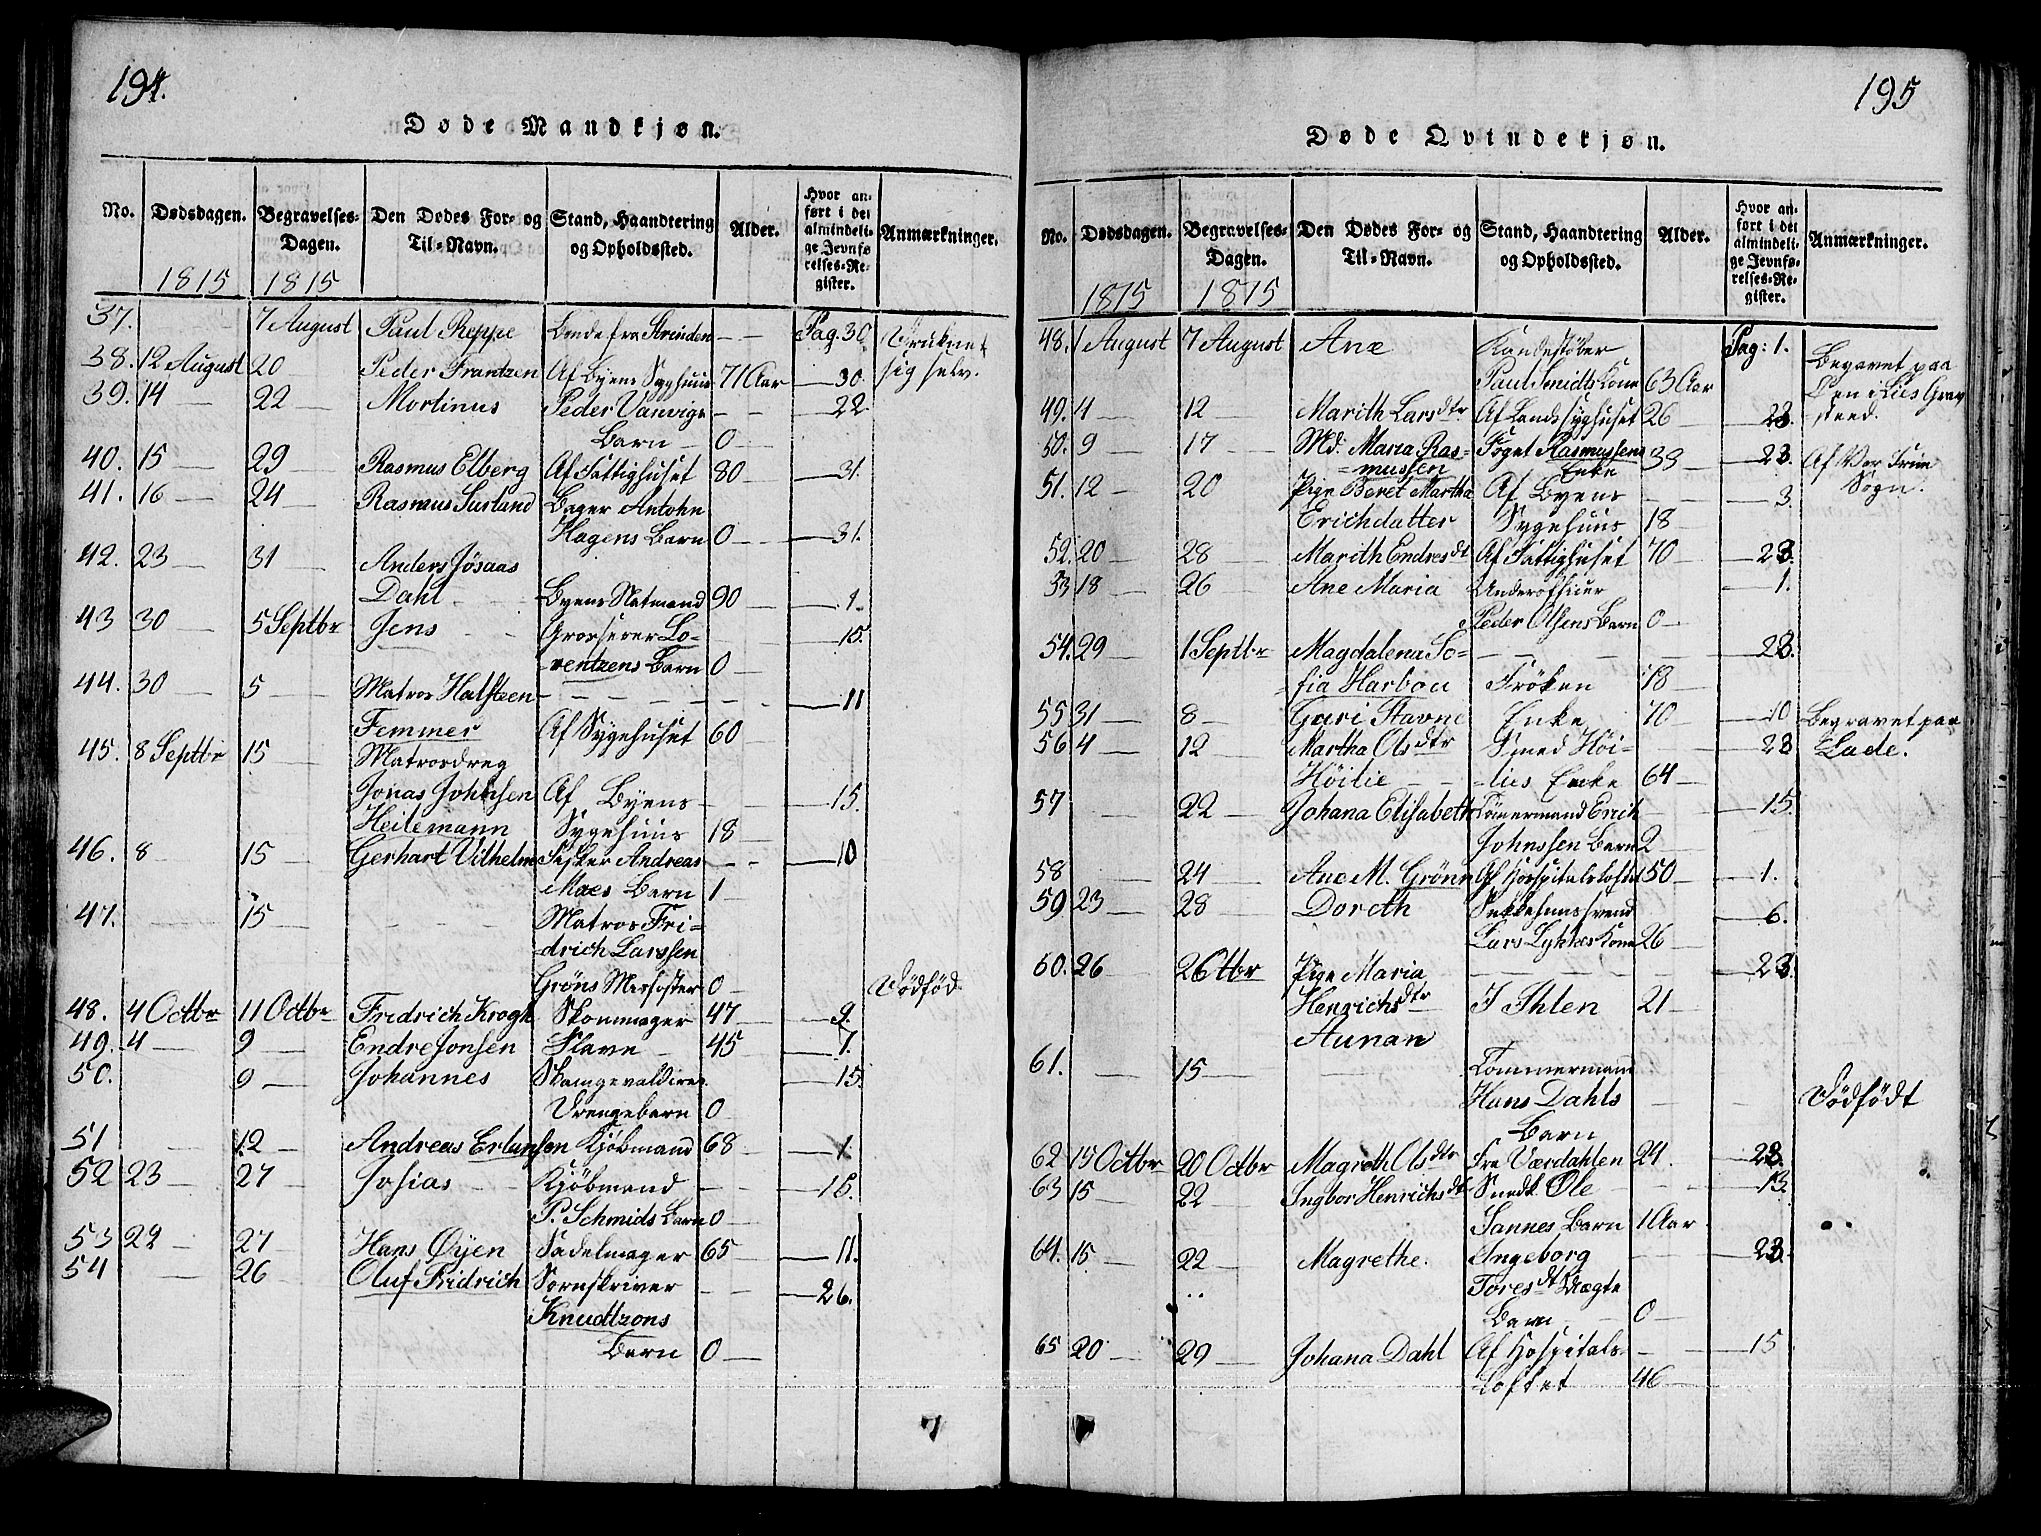 194.
Døde Mandkjøn.
No. Dødsdagen. Begravelses-Dagen. Den Dødes For- og Til-Navn. Stand, Haandtering og Opholdssted. Alder. Hvor anført i det almindelige Jevnførelses-Register. Anmærkninger.
1815 1815
37. 7 August Paul Reppe Bonde fra Strinden — — Pag. 30 Druknet
38. 12 August 20 — Peder Frantzen Af Byens Syghuus 71 Aar — 30. sig selv.
39. 14 — 22 — Mortinus Peder Vanvigs — — — 22
Barn — 0 —
40. 15 — 29 — Rasmus Elberg Af Fattighuset 80 — — 31.
41. 16 — 24 — Rasmus Surland Bager Antohn
Hagens Barn 0 — — 31.
42. 23 — 31 — Anders Jösaas
Dahl — Byens Natmand 90 — — 1.
43 30 — 5 Septbr Jens — Grosserer Lo- — — 10.
rentzens Barn 0 —
44. 30 — 5 — Matros Halsteen — — — — — 11
Femmer Af Sygehuset 60 —
45. 8 Septbr 15 — Matrosdreg
Jonas Johnsen Af Byens — — 15.
Heilemann Sygehuus 18 —
46. 8 — 15 — Gerhart Vilhelm Fisker Andreas — — — 10
Moes Barn 1 —
47. — 15 — — — Matros Fri-
drich Larssen
Gröns Misfoster 0 — Dödfød
48. 4 Octbr 11 Octbr Fridrich Krogh Skommager 47 — — 9.
49. 4 — 9 — Endre Jonsen Slave — 45 — — 7.
50. 9 — Johannes
Drengebarn 0 — — 15.
51 — 12 — Andreas Erlansen Kjöbmand 68 — — 1.
52 23 — 27 — Josias — — Kjöbmand — — 16.
P. Schmids Barn 0 —
53 22 — 27 — Hans Øyen Sadelmager 65 — — 11.
54 — 26 — Oluf Fridrich Sornskriver — — — 26.
Knudtzons
Barn 0 —
195
Døde Qvindekjøn.
No. Dødsdagen. Begravelses-Dagen. Den Dødes For- og Til-Navn. Stand, Haandtering og Opholdssted. Alder. Hvor anført i det almindelige Jevnførelses-Register. Anmærkninger.
1815 1815
48. 1 August 7 August Ane Kandestøber Pag: 1. Begavet paa
Paul Smidts Kone 63 Aar
49. 4 — 12 — Marith Larsdtr Af Lands syghuset 26 — — 23. steed.
50. 9 — 17 — Md. Maria Ras- Foget Rasmussens 33 — — 23. Af Vor Frue
mussen Enke Sogn.
51. 12 — 20 Pige Beret Martha Af Byens — — 3.
Erichdatter Sygehuus 18 —
52. 20 — 28 — Marith Endresdt Af Fattighuset 70 — — 23.
53 18 — 26 — Ane Maria Underofficer — 1.
Peder Olsens Barn 0 —
54. 29 — 1 Septbr Magdalena So- — — — — 23.
fia Harbou Fröken 18 —
55 31 — 8 — Guri Stavne Enke 70 — — 10 Begravet paa
56 4 — 12 — Martha Olsdtr Smed Höi- — 23 Lade.
Höilie — lies Encke 64 —
57 — 22 — Johana Elisabeth Tömermand Erich — 15.
Johnssen Barn 2 —
58 — 24 — Ane M. Grönn Af Hospitalsloftet 50 — — 1.
59 23 — 28 — Doroth — 6.
Lars Lykkes Kone 26 —
60. 26 — 26 Octbr Pige Maria — — — 23
Henrichsdtr I Ihlen 21 —
Aunan
61. — 15 — — — Tömmermand
Hans Dahls — — Dödfödt
Barn
62 15 Octbr 20 Octbr Magreth Olsdtr Fra Værdahlen 24. — 23.
63 15 — 22 — Ingbor Henrichsdt Snedk Ole — — — 13.
Sannes Barn 1 Aar
64. 15 — 22 — Magrethe. Ingeborg — — 23.
Toresdt Uægte
Barn 0 —
65 20 — 29 — Johana Dahl Af Hospitals- — — 15
Loftet 46 —